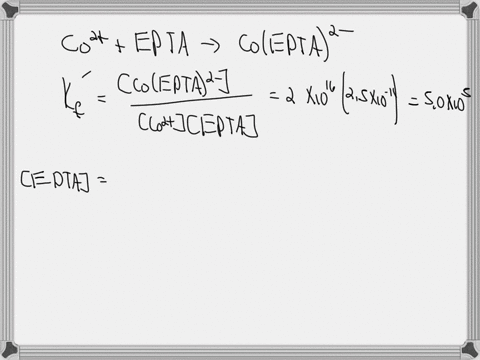 Co²⁺ + EDTA → Co(EDTA)²⁻
K_f′ = [Co(EDTA)²⁻] / [Co²⁺][EDTA] = 2 × 10¹⁶ (2.5×10⁻¹¹) = 5.0×10⁵
[EDTA] =